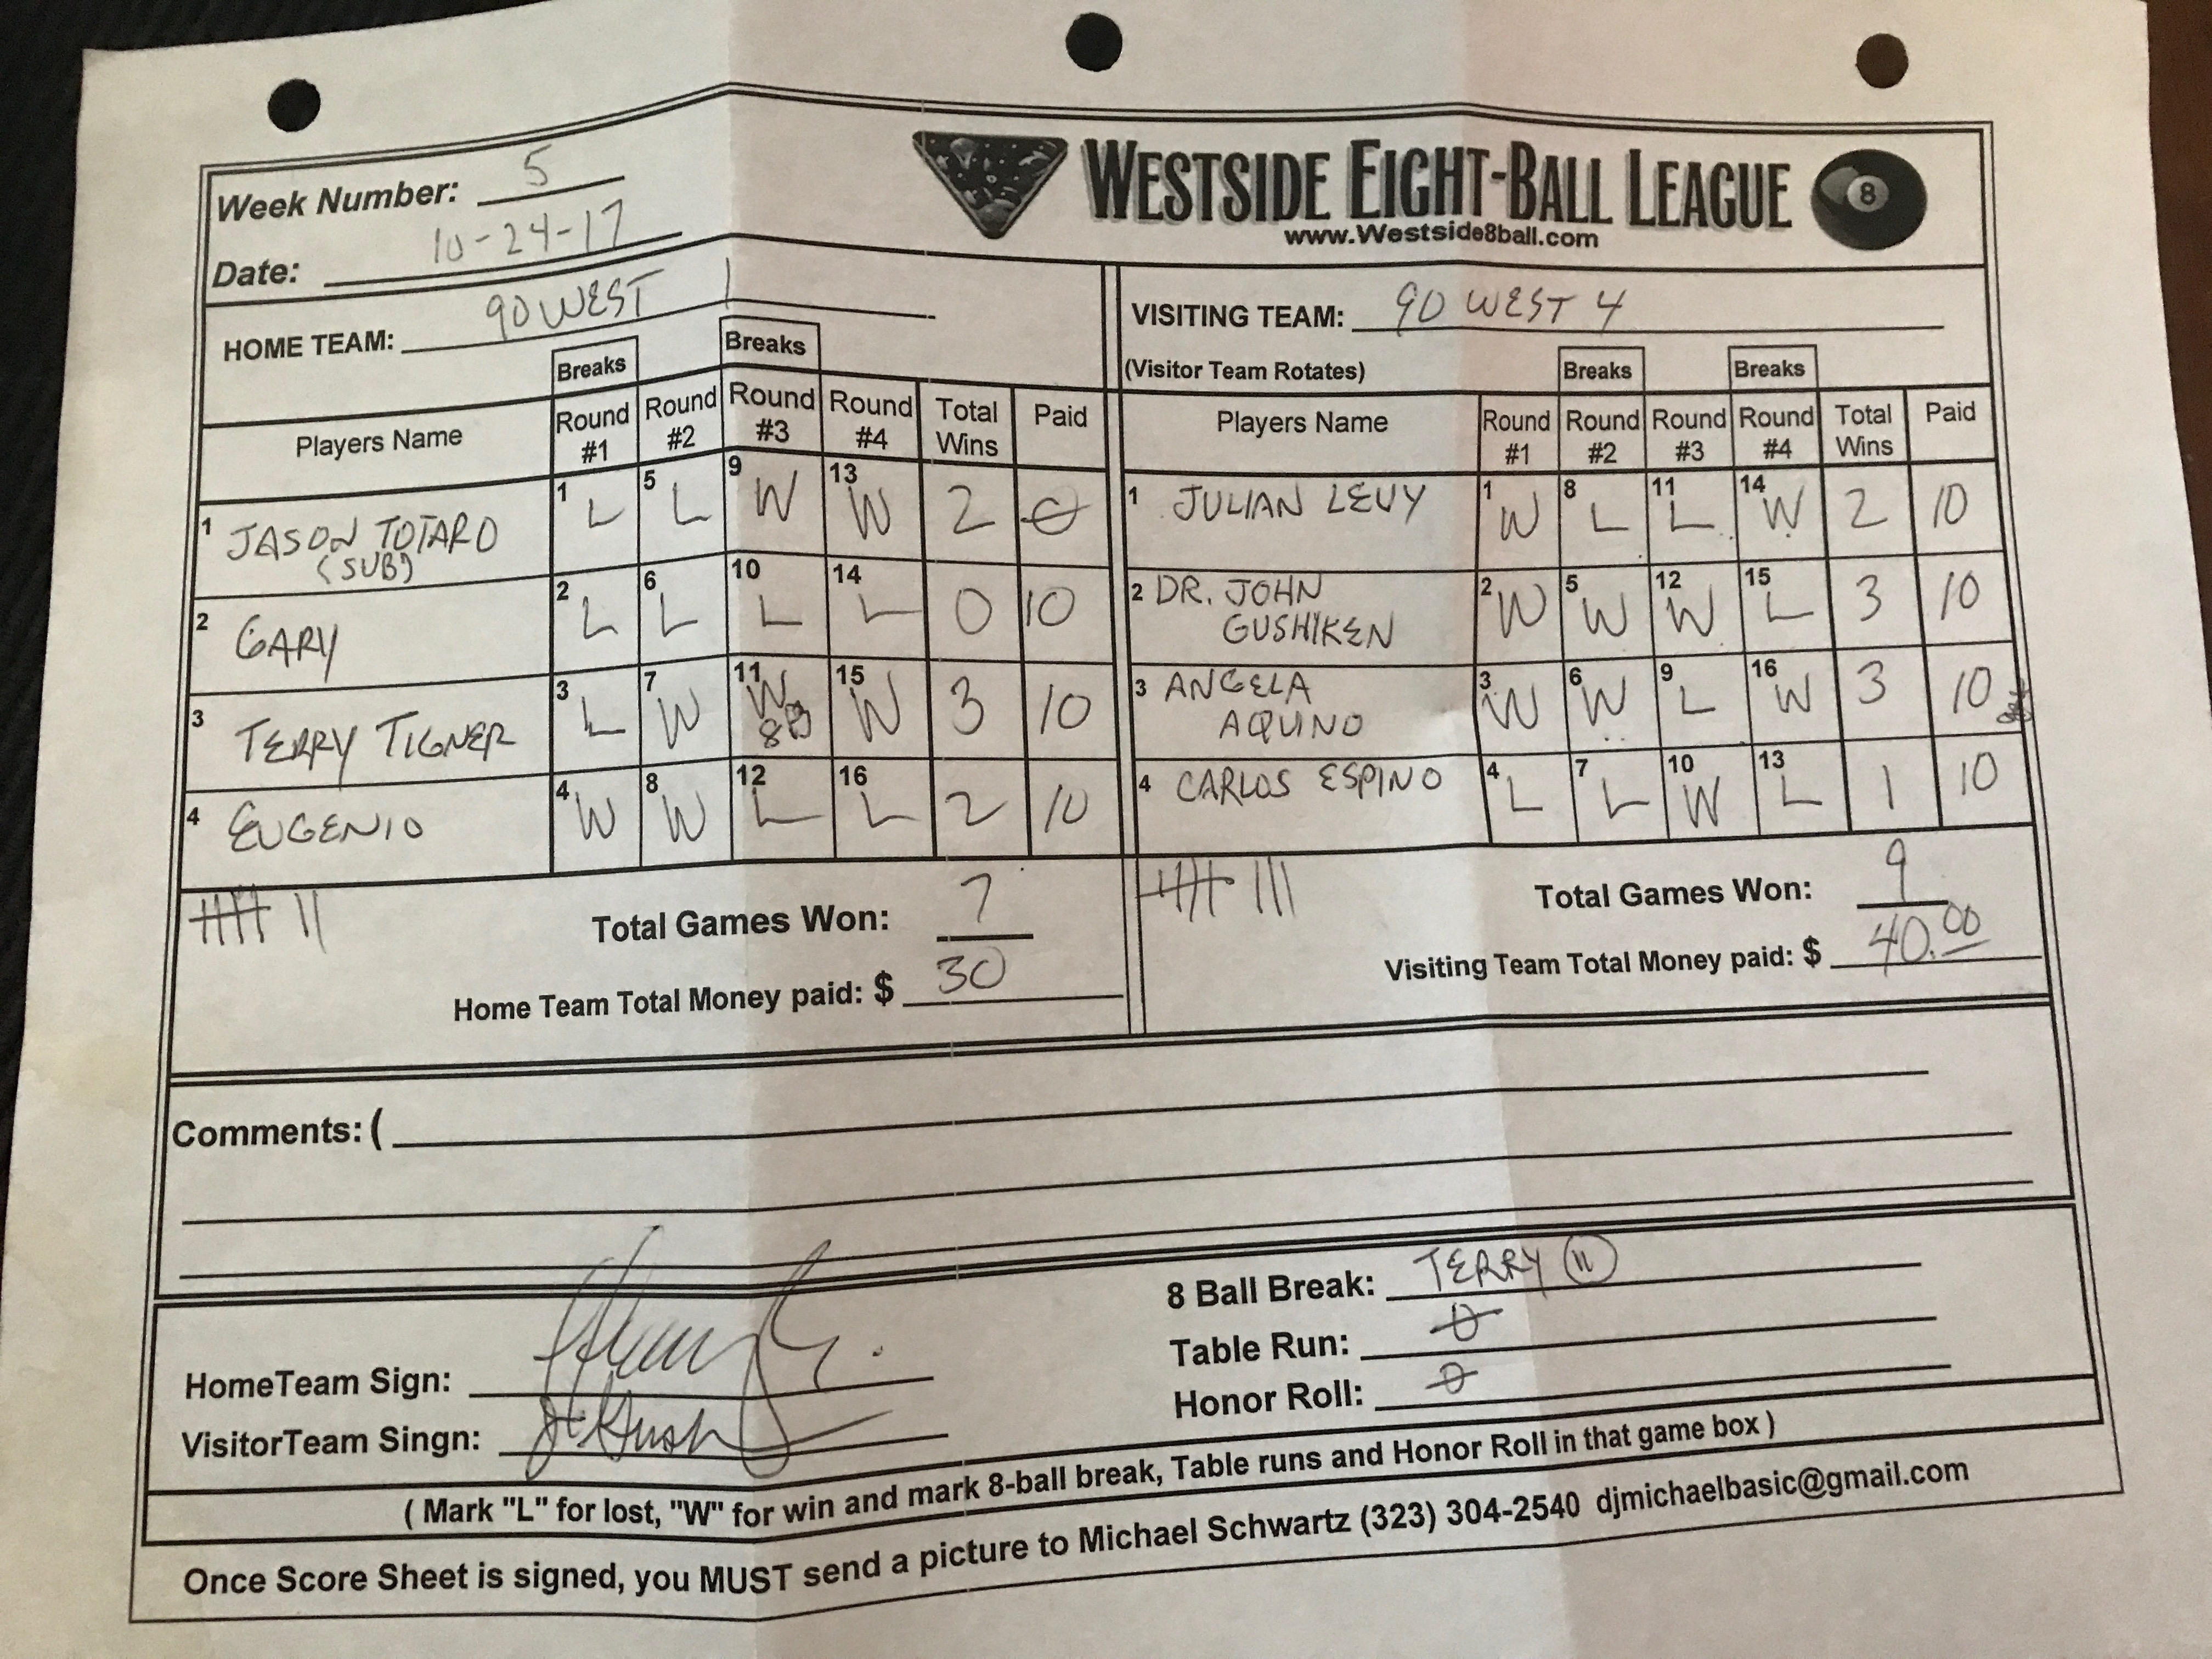 Week Number: 5
Date: 10-24-17
WESTSIDE EIGHT-BALL LEAGUE 8
www.Westside8ball.com
HOME TEAM: 90 WEST 1
VISITING TEAM: 90 WEST 4
(Visitor Team Rotates)
Breaks Breaks
Players Name Round #1 Round #2 Round #3 Round #4 Total Wins Paid
1 JASON TOTARO (SUB) 1 L 5 L 9 W 13 W 2 0
2 GARY 2 L 6 L 10 L 14 L 0 10
3 TERRY TIGNER 3 L 7 W 11 W 8B 15 W 3 10
4 EUGENIO 4 W 8 W 12 L 16 L 2 10
Total Games Won: 7
Home Team Total Money paid: $ 30
Breaks Breaks
Players Name Round #1 Round #2 Round #3 Round #4 Total Wins Paid
1 JULIAN LEVY 1 W 8 L 11 L 14 W 2 10
2 DR. JOHN GUSHIKEN 2 W 5 W 12 W 15 L 3 10
3 ANGELA AQUINO 3 W 6 W 9 L 16 W 3 10
4 CARLOS ESPINO 4 L 7 L 10 W 13 L 1 10
Total Games Won: 9
Visiting Team Total Money paid: $ 40.00
Comments: (
HomeTeam Sign:
VisitorTeam Singn:
8 Ball Break: TERRY 11
Table Run: 0
Honor Roll: 0
( Mark "L" for lost, "W" for win and mark 8-ball break, Table runs and Honor Roll in that game box )
Once Score Sheet is signed, you MUST send a picture to Michael Schwartz (323) 304-2540 djmichaelbasic@gmail.com